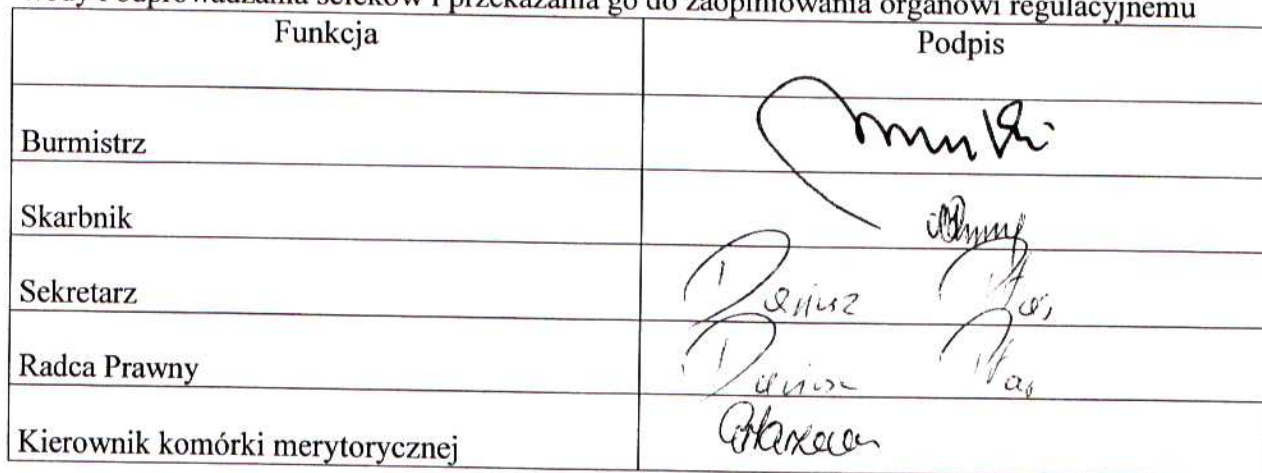 wody i odprowadzania ścieków i przekazania go do zaopiniowania organowi regulacyjnemu
Funkcja Podpis
Burmistrz
Skarbnik
Sekretarz Dariusz
Radca Prawny Dariusz
Kierownik komórki merytorycznej